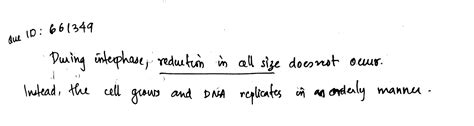 Que ID: 661349
During interphase, reduction in cell size doesnot occur.
Instead, the cell grows and DNA replicates in an orderly manner.